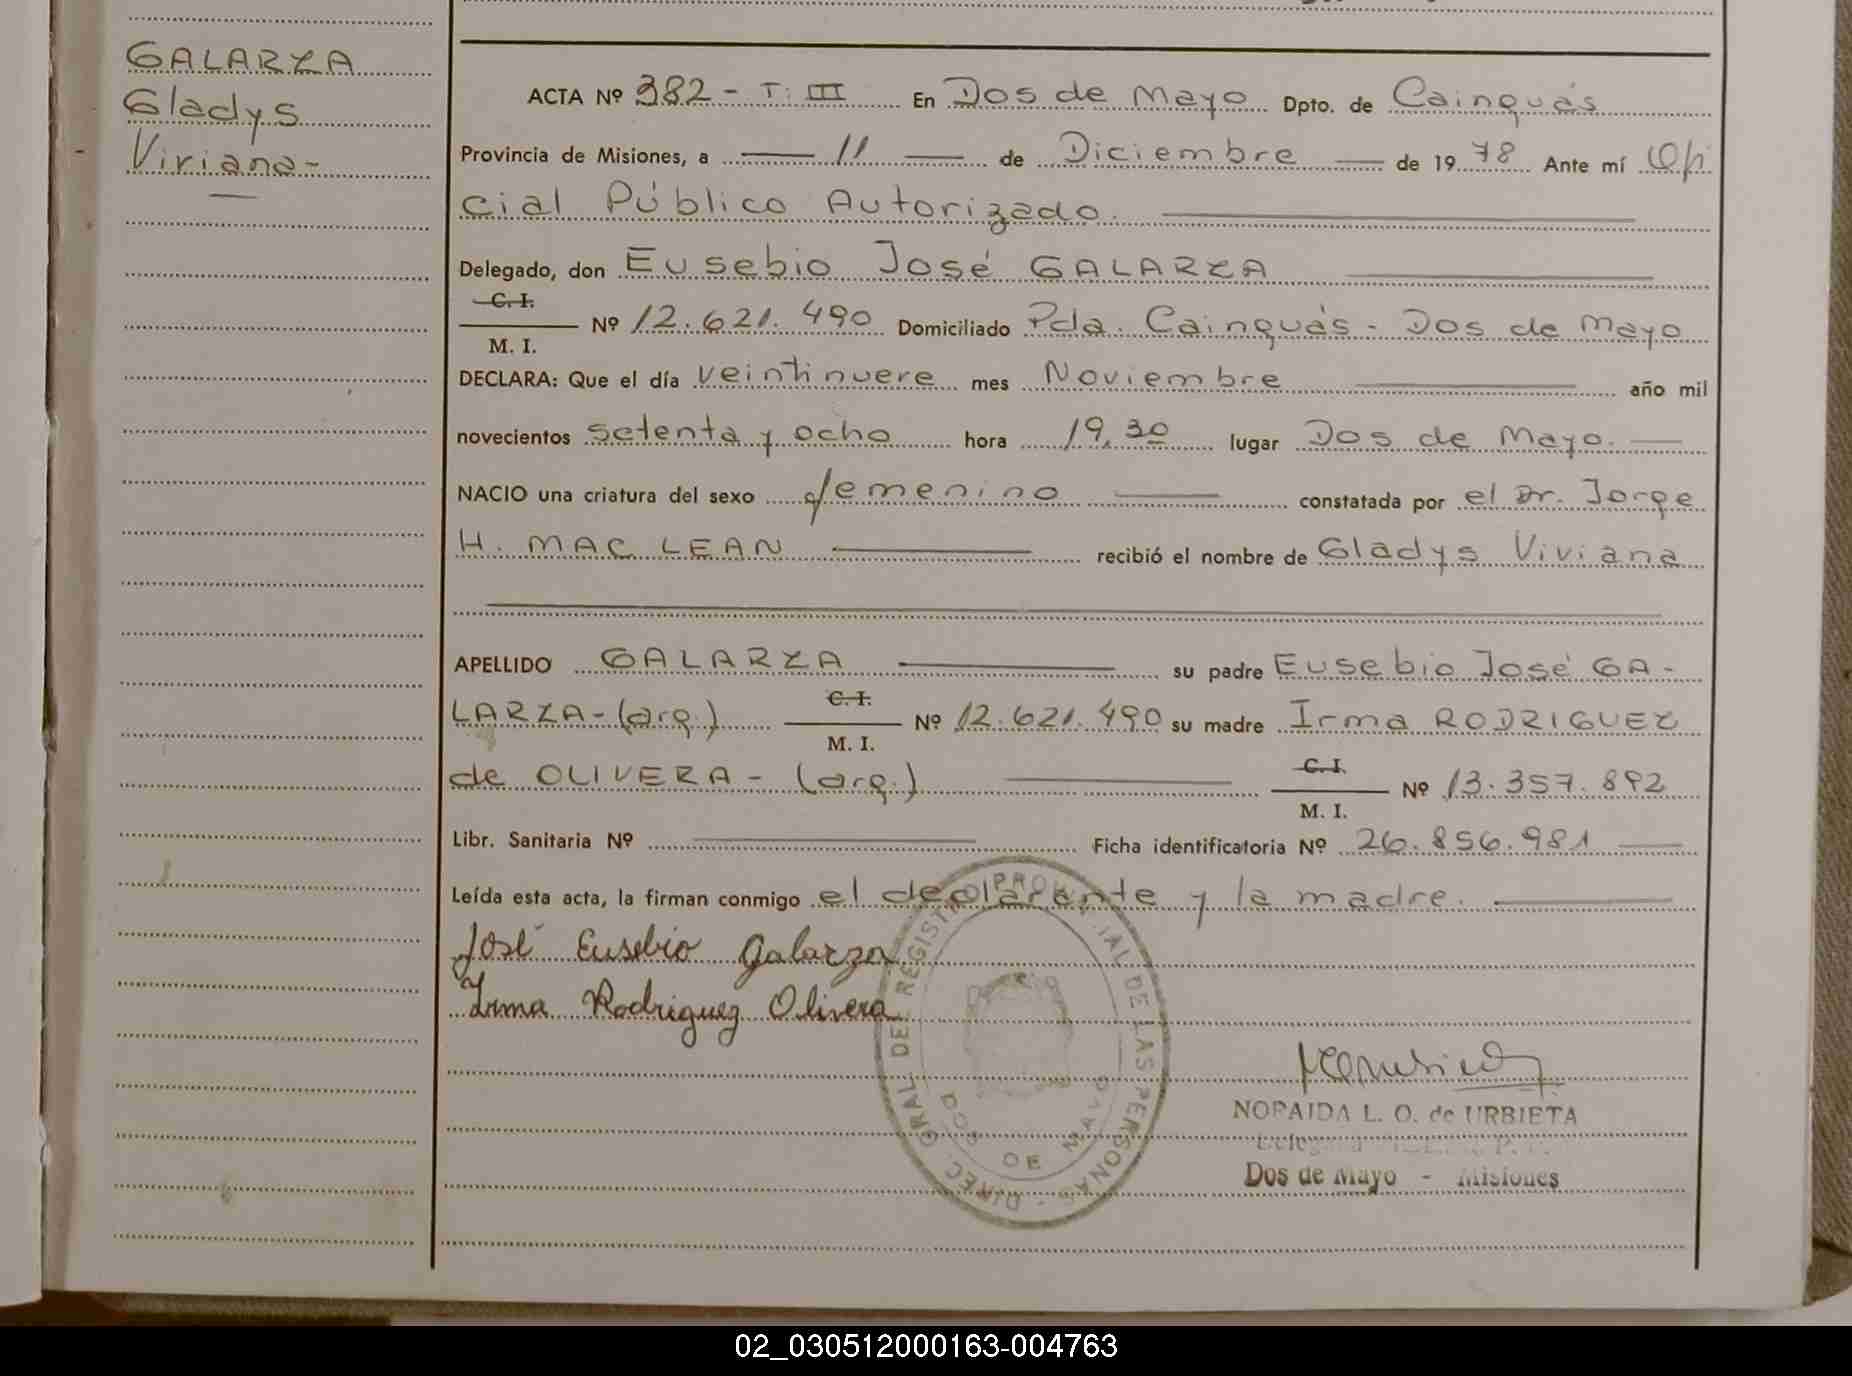 GALARZA
Gladys
Viviana-
ACTA Nº 382 - T: III En Dos de Mayo Dpto. de Cainguás
Provincia de Misiones, a 11 de Diciembre de 1978 Ante mí Ofi
cial Público Autorizado.
Delegado, don Eusebio José GALARZA
C. I.
M. I. Nº 12.621.490 Domiciliado Pda. Cainguás - Dos de Mayo
DECLARA: Que el día veintinueve mes Noviembre año mil
novecientos setenta y ocho hora 19,30 lugar Dos de Mayo.
NACIO una criatura del sexo femenino constatada por el Dr. Jorge
H. MAC LEAN recibió el nombre de Gladys Viviana
APELLIDO GALARZA su padre Eusebio José GA-
LARZA - (arg.) C. I. M. I. Nº 12.621.490 su madre Irma RODRIGUEZ
de OLIVERA - (arg.) C. I. M. I. Nº 13.357.892
Libr. Sanitaria Nº Ficha identificatoria Nº 26.856.981
Leída esta acta, la firman conmigo el declarante y la madre.
José Eusebio Galarza
Irma Rodriguez Olivera
DIREC. GRAL DEL REGISTRO PROVINCIAL DE LAS PERSONAS -
DOS DE MAYO
NORAIDA L. O. de URBIETA
Dos de Mayo - Misiones
02_030512000163-004763